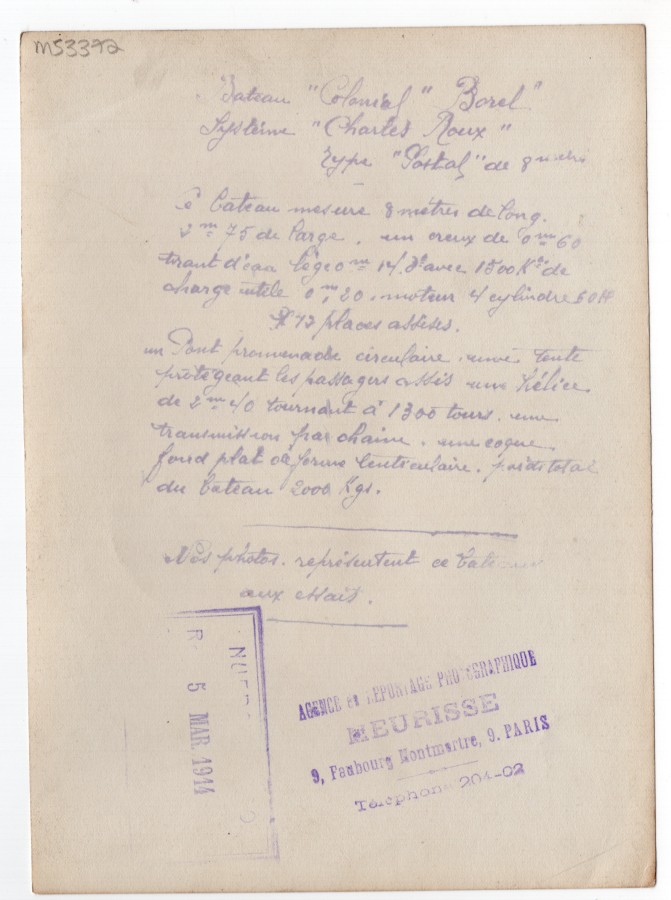 M53372
Bateau "Colonial" Borel"
Système "Charles Roux"
Type "Postal" de 8
e bateau mesure 8 mètres de long.
2m 75 de large. un creux de 0m 60
tirant d'eau lège 0m 14. avec 1500 Kgs de
charge utile 0m, 20. moteur 4 cylindre 60 H
places assises.
un Pont promenade circulaire. une tente
protégeant les passagers assis une hélice
de 2m 40 tournant à 1300 tours. une
transmission par chaine. une coque
fond plat forme lenticulaire. poids total
du bateau 2000 Kgs.
Nos photos. représentent ce bateau
aux essais.
R 5 MAR 1914
AGENCE et REPORTAGE PHOTOGRAPHIQUE
MEURISSE
9, Faubourg Montmartre, 9. PARIS
Téléphone 204-02